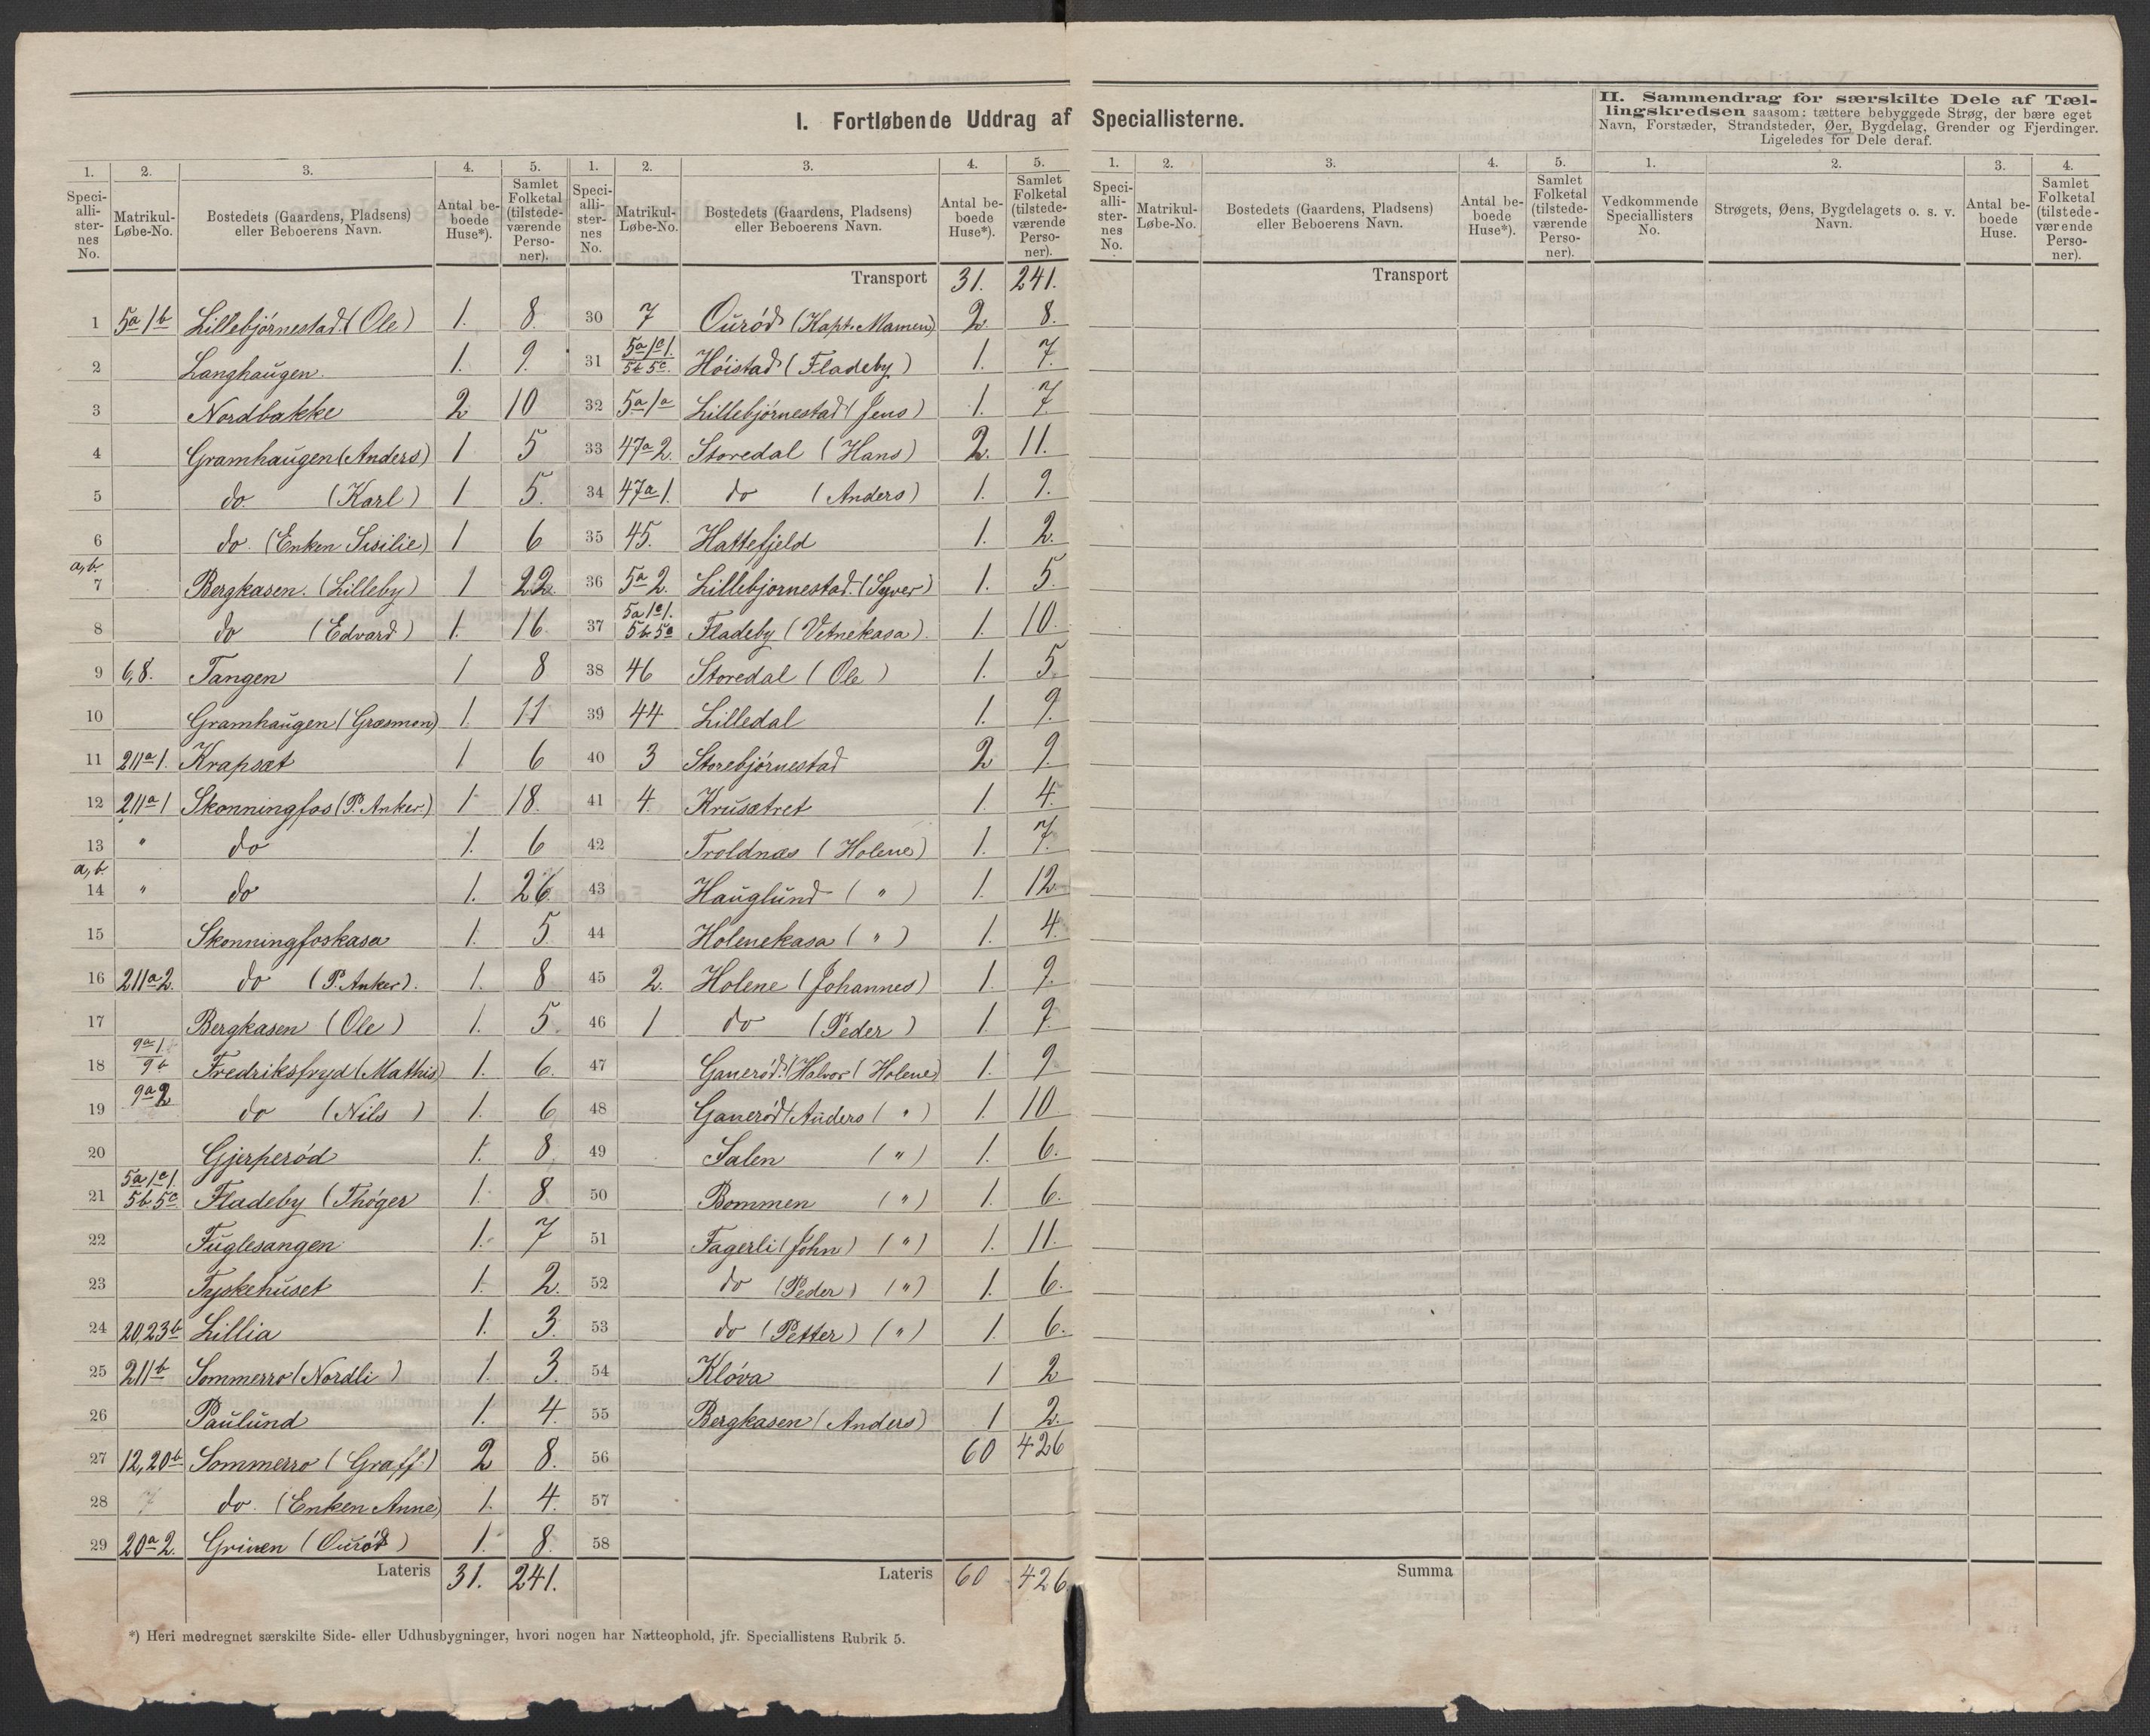 I. Fortløbende Uddrag af Speciallisterne.
II. Sammendrag for særskilte Dele af Tæl-
lingskredsen saasom: tættere bebyggede Strøg, der bære eget
Navn, Forstæder, Strandsteder, Øer, Bygdelag, Grender og Fjerdinger.
Ligeledes for Dele deraf.
1. 2. 3. 4. 5. 1. 2. 3. 4. 5. 1. 2. 3. 4. 5. 1. 2. 3. 4.
Speci-alli-ster-nes No. Matrikul-Løbe-No. Bostedets (Gaardens, Pladsens) eller Beboerens Navn. Antal be-boede Huse*). Samlet Folketal (tilstede-værende Perso-ner).
Speci-alli-ster-nes No. Matrikul-Løbe-No. Bostedets (Gaardens, Pladsens) eller Beboerens Navn. Antal be-boede Huse*). Samlet Folketal (tilstede-værende Perso-ner).
Speci-alli-ster-nes No. Matrikul-Løbe-No. Bostedets (Gaardens, Pladsens) eller Beboerens Navn. Antal be-boede Huse*). Samlet Folketal (tilstede-værende Perso-ner).
Vedkommende Speciallisters No. Strøgets, Øens, Bygdelagets o. s. v. Navn. Antal be-boede Huse. Samlet Folketal (tilstede-værende Perso-ner).
1 5a 1b Lillebjørnestad (Ole) 1. 8.
2 Langhaugen 1. 9.
3 Nordbakke 2 10
4 Gramhaugen (Anders) 1 5
5 do. (Karl) 1 5.
6 do. (Enken Sisilie) 1 6
a, b. 7 Bergkasen. (Lilleby) 1 22.
8 do (Edvard) 1. 16.
9 6,8. Tangen 1 8
10 Gramhaugen (Græsmon) 1. 11
11 211a1. Krapsæt 1 6
12 211a1 Skonningfos (P. Anker) 1 18.
13 " do 1. 6
a, b. 14 " do 1. 26
15 Skonningfoskasa 1. 5.
16 211a2. do (P. Anker). 1. 8
17 Bergkasen (Ole) 1. 5.
18 9a1. 9b Fredriksfryd (Mathis) 1. 6.
19 9a2 do (Nils) 1. 6
20 Gjerperød 1. 8.
21 5a1c1. 5b 5c Fladeby (Thøger 1. 8
22 Fuglesangen 1. 7
23 Tyskehuset 1. 2.
24 20,23b Lillia 1. 3.
25 211b Sommerro (Nordli) 1. 3.
26 Paulund 1. 4.
27 12,20b Sommerro (Graff) 2 8.
28 7 do. (Enken Anne) 1. 4.
29 20a2. Grinen (Ourød) 1. 8.
Lateris 31. 241.
Transport 31. 241.
30 7 Ourød (Kapt. Mamen) 2. 8.
31 5a1c1. 5b 5c. Høistad (Fladeby) 1. 7.
32 5a1a Lillebjørnestad (Jens) 1. 7.
33 47a2. Storedal (Hans) 2. 11.
34 47a1. do (Anders) 1. 9.
35 45. Hattefjeld 1. 2.
36 5a2. Lillebjørnestad. (Syver) 1. 5.
37 5a1c1. 5b 5c Fladeby (Vetnekasa). 1. 10.
38 46 Storedal (Ole) 1. 5.
39 44 Lilledal 1. 9.
40 3 Storebjørnestad 2 9.
41 4. Krusætret 1. 4.
42 Troldnæs (Holene) 1. 7.
43 Hauglund (") 1. 12.
44 Holenekasa (") 1. 4.
45 2. Holene (Johannes) 1. 9.
46 1 do (Peder) 1 9.
47 Ganerød (Halvor (Holene) 1. 9
48 Ganerød (Anders (") 1. 10
49 Salen (") 1. 6.
50 Bommen (") 1. 6.
51 Fagerli (John) (") 1. 11.
52 do (Peder) (") 1. 6.
53 do (Petter) (") 1. 6.
54 Kløva 1 2
55 Bergkasen (Anders) 1 2.
56 60 426
57
58
Lateris 60 426
Transport
Summa
*) Heri medregnet særskilte Side- eller Udhusbygninger, hvori nogen har Natteophold, jfr. Speciallistens Rubrik 5.